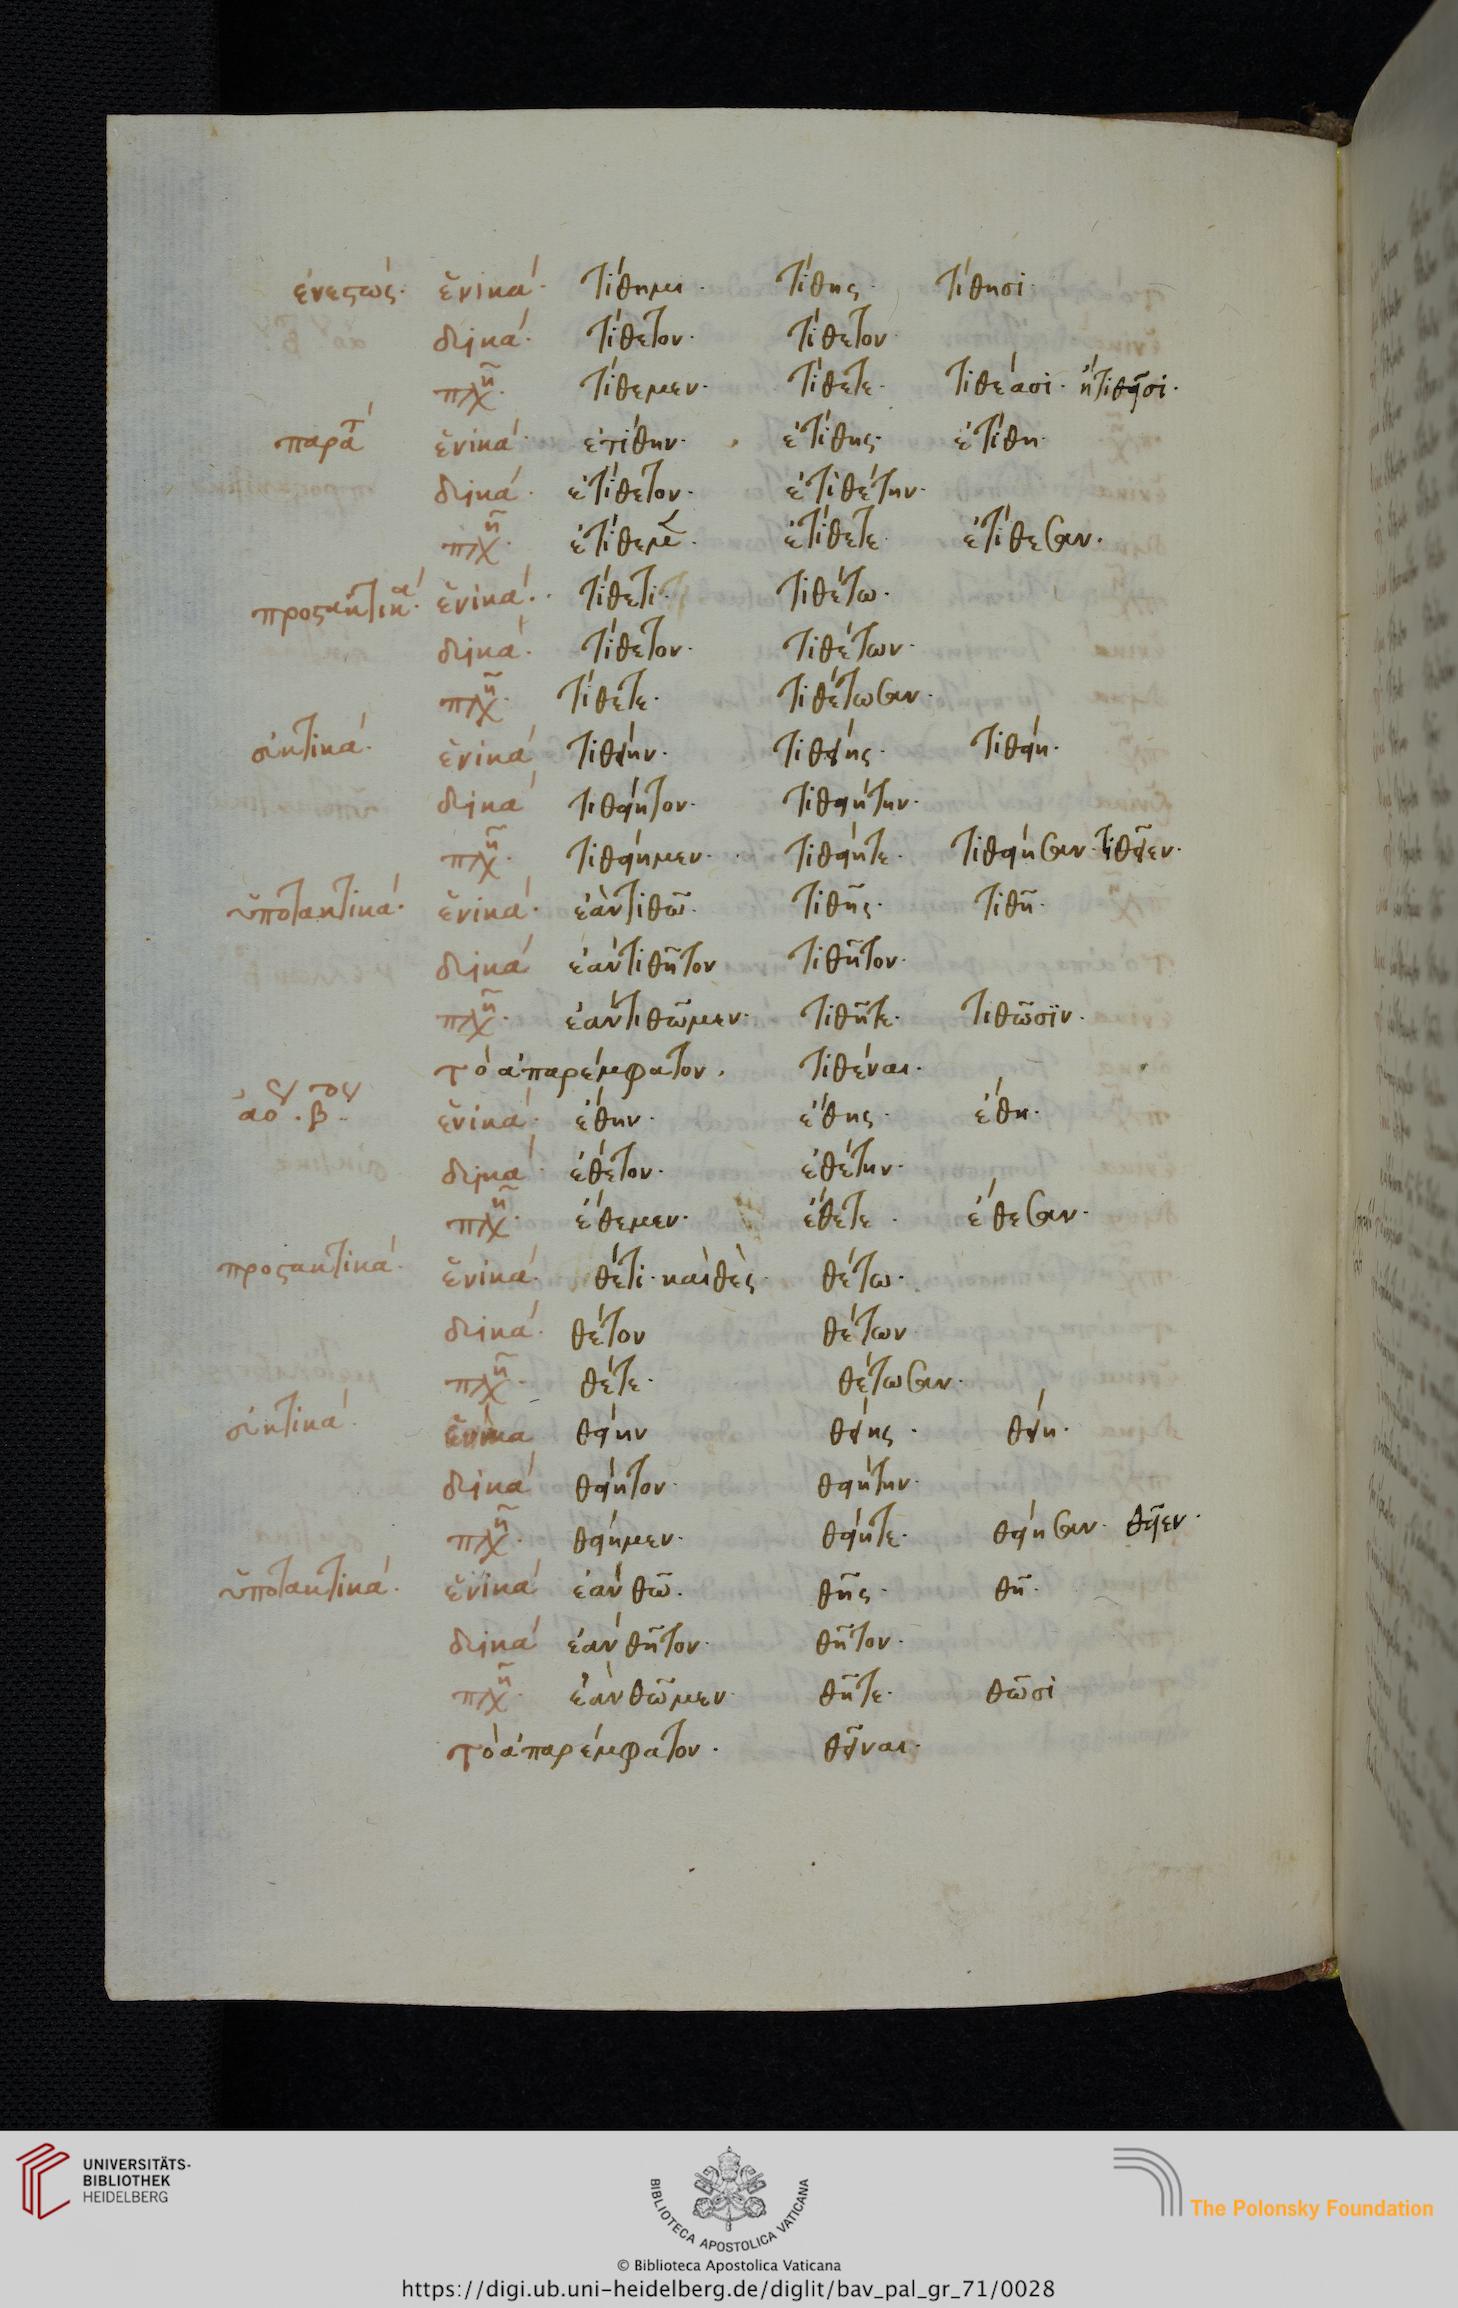 ἐνεστώς· ἑνικά· τίθημι· τίθης· τίθησι·
δυικά· τίθετον· τίθετον·
πλη· τίθεμεν· τίθετε· τιθέασι· ἢ τιθεῖσι·
παρατ ἑνικά· ἐτίθην· ἐτίθης· ἐτίθη·
δυικά· ἐτίθετον· ἐτιθέτην·
πλη· ἐτίθεμεν· ἐτίθετε· ἐτίθεσαν·
προστακτικά· ἑνικά· τίθετι· τιθέτω·
δυικά· τίθετον· τιθέτων·
πλη· τίθετε· τιθέτωσαν·
εὐκτικά· ἑνικά τιθείην· τιθείης· τιθείη·
δυικά τιθείητον· τιθειήτην·
πλη· τιθείημεν· τιθείητε· τιθείησαν· τιθεῖεν·
ὑποτακτικά· ἑνικά· ἐὰν τιθῶ· τιθῇς· τιθῇ·
δυικά ἐὰν τιθῆτον τιθῆτον·
πλη· ἐὰν τιθῶμεν· τιθῆτε· τιθῶσϊν·
τὸ ἀπαρέμφατον. τιθέναι·
ἀορ. β. ἑνικά· ἔθην· ἔθης· ἔθη·
δυικά· ἔθετον· ἐθέτην·
πλη· ἔθεμεν· ἔθετε· ἔθεσαν·
προστακτικά· ἑνικά· θέτι· καὶ θὲς· θέτω·
δυικά· θέτον θέτων·
πλη· θέτε· θέτωσαν·
εὐκτικά· ἑνικά θείην θείης· θείη·
δυικά θείητον· θειήτην·
πλη· θείημεν· θείητε· θείησαν· θεῖεν·
ὑποτακτικά· ἑνικά ἐὰν θῶ. θῇς· θῇ·
δυικά ἐὰν θῆτον· θῆτον·
πλη· ἐὰν θῶμεν· θῆτε· θῶσι
τὸ ἀπαρέμφατον· θεῖναι·
UNIVERSITÄTS-
BIBLIOTHEK
HEIDELBERG
BIBLIOTECA APOSTOLICA VATICANA
The Polonsky Foundation
© Biblioteca Apostolica Vaticana
https://digi.ub.uni-heidelberg.de/diglit/bav_pal_gr_71/0028